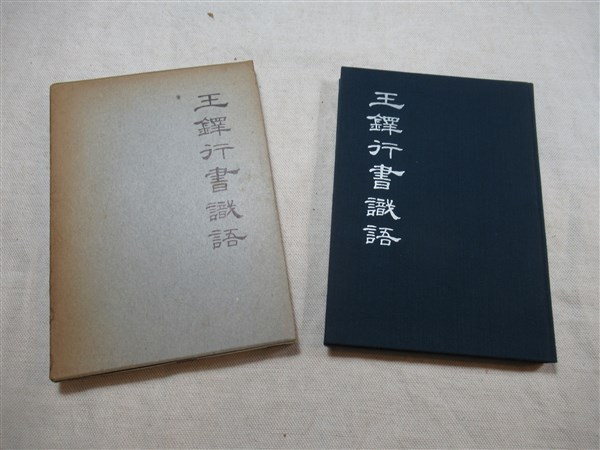 王鐸行書識語
王鐸行書識語